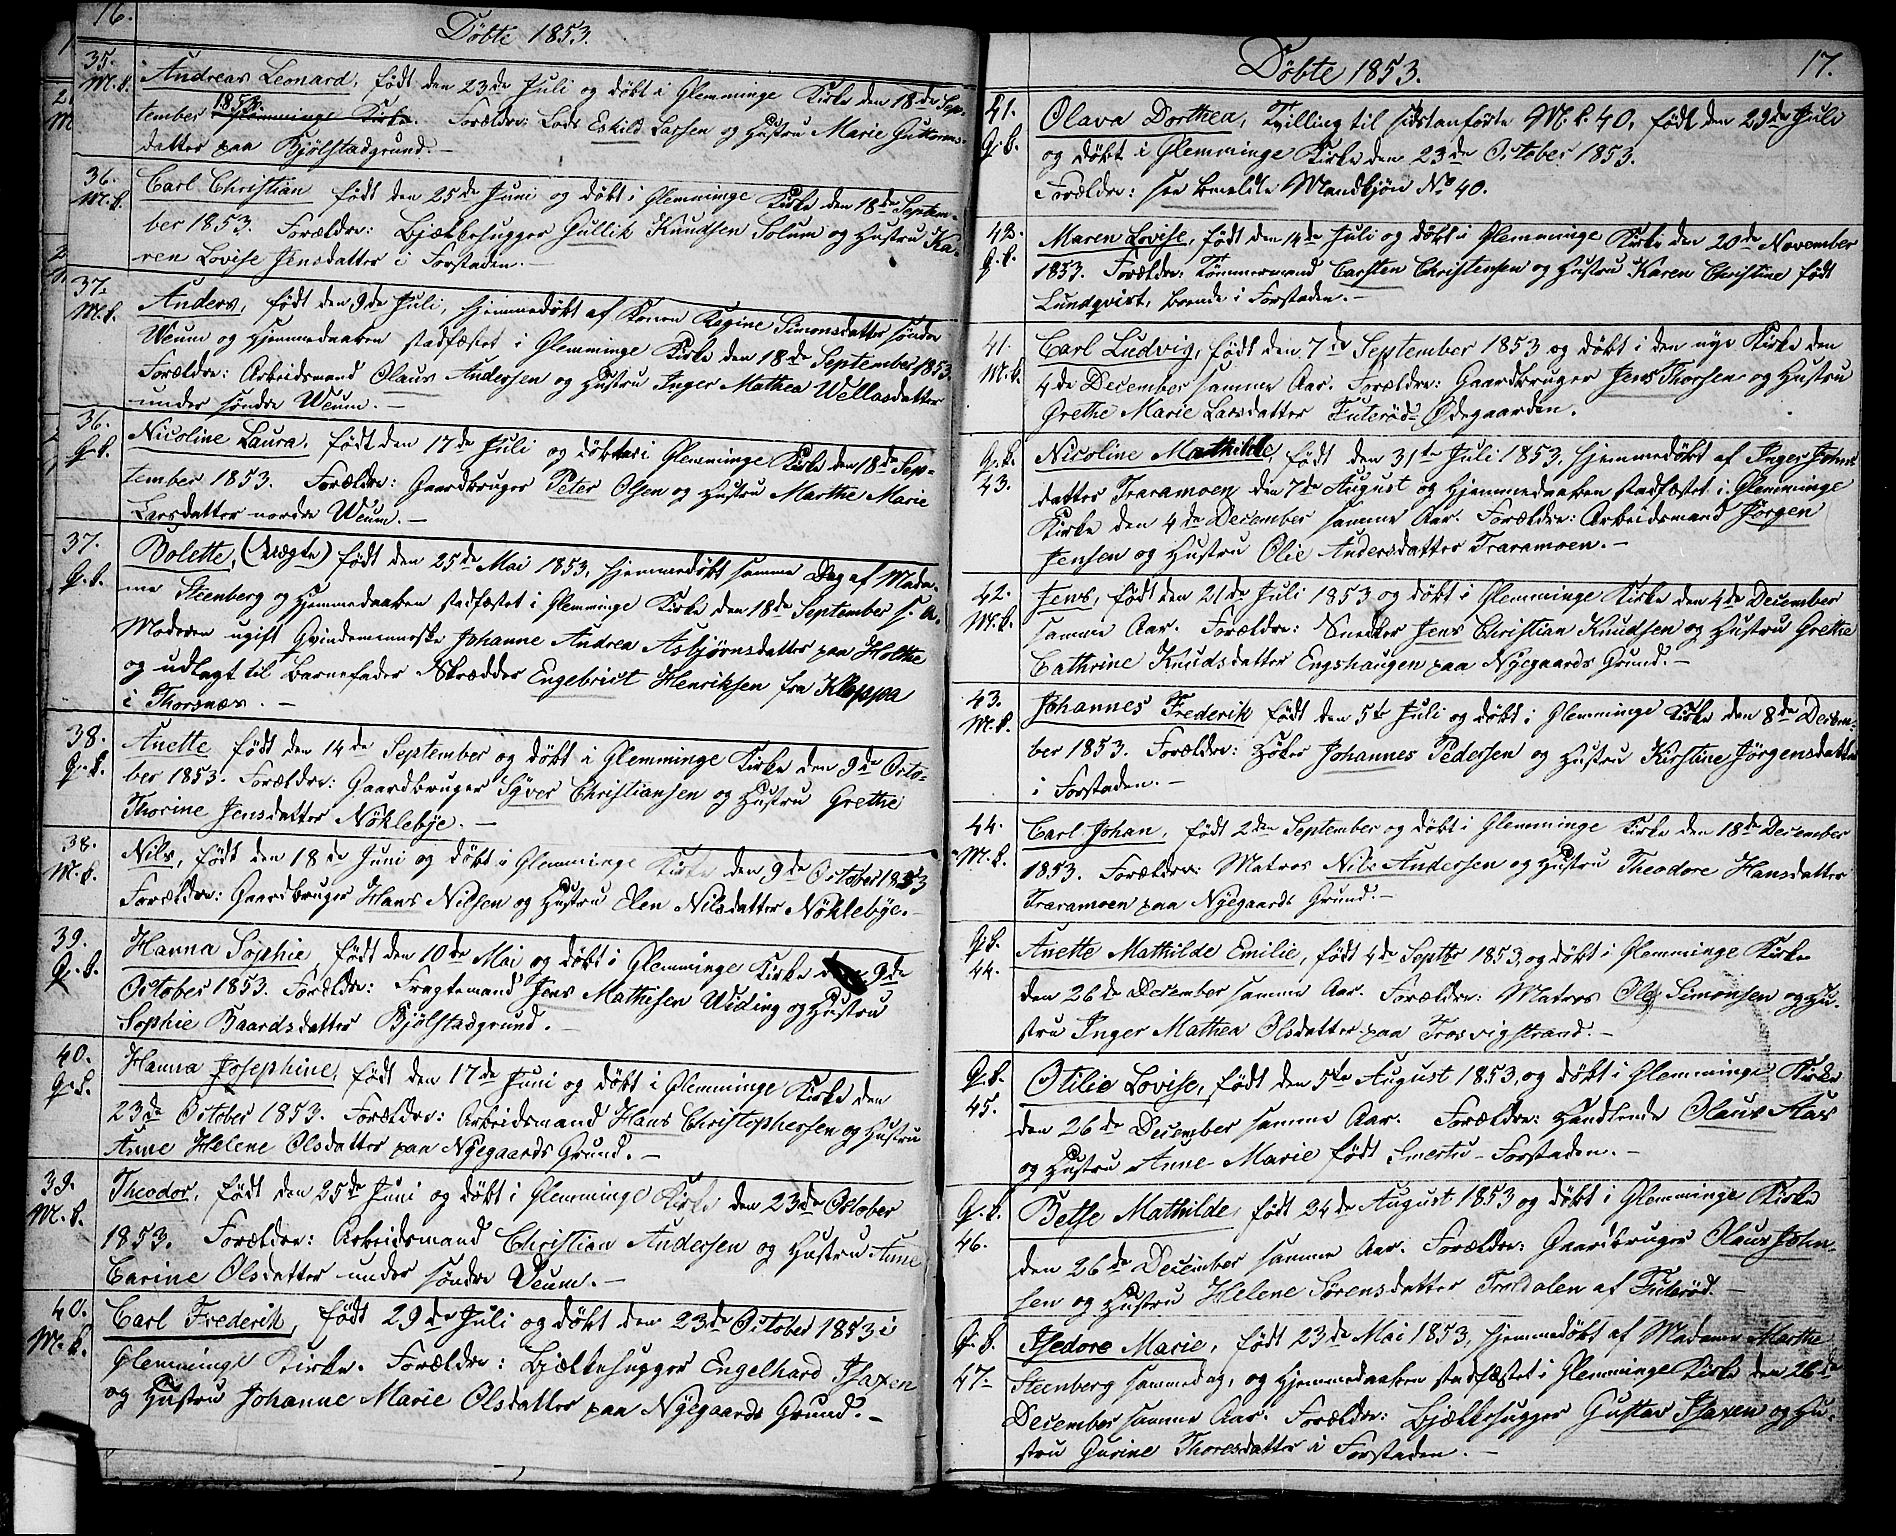 16.
Döbte 1853.
35.
M.k. Andreas Leonard, født den 23de Juli og døbt i Glemminge Kirke den 18de Sep-
tember 1853. Glemminge Kirke. Forældre: Lods Eskild Larsen og Hustru Marie Guttorms-
datter paa Bjölstadgrund.-
36.
M.k. Carl Christian født den 25de Juni og døbt i Glemminge Kirke den 18de Septem-
ber 1853. Forældre: Bjælkehugger Gullik Knudsen Solum og Hustru Ka-
ren Lovise Jensdatter i Forstaden.-
37.
M.k. Anders, født den 9de Juli, hjemmedøbt af Konen Regine Simonsdatter søndre
Weum og Hjemmedaaben stadfæstet i Glemminge Kirke den 18de September 1853.
Forældre: Arbeidsmand Olaus Andersen og Hustru Inger Mathea Wellasdatter
under søndre Weum.-
36.
Q.k. Nicoline Laura, født den 17de Juli og døbt i Glemminge Kirke den 18de Sep-
tember 1853. Forældre: Gaardbruger Peter Olsen og Hustru Marthe Marie
Larsdatter nordre Weum.-
37.
Q.k. Bolette, (uægte) født den 25de Mai 1853, hjemmedøbt samme Dag af Mada-
me Steenberg og Hjemmedaaben stadfæstet i Glemminge Kirke den 18de September s. A.
Moderen ugift Qvindemenneske Johanne Andrea Asbjørnsdatter paa Holthe
og udlagt til Barnefader Skrædder Engebrict Henriksen fra Kloppa
i Thorsnæs.-
38.
Q.k. Anette født den 14de September og døbt i Glemminge Kirke den 9de Octo-
ber 1853. Forældre: Gaardbruger Syver Christiansen og Hustru Grethe
Thorine Jensdatter Nöklebye.-
38.
M.k. Nils, født den 18de Juni og døbt i Glemminge Kirke den 9de October 1853
Forældre: Gaardbruger Hans Nilsen og Hustru Elen Nilsdatter Nöklebye.-
39.
Q.k. Hanna Sophie, født den 10de Mai og døbt i Glemminge Kirke den 9de
October 1853. Forældre: Fragtemand Jens Mathisen Widing og Hustru
Sophie Baardsdatter Bjölstadgrund.-
40.
Q.k. Hanna Josephine, født den 17de Juni og døbt i Glemminge Kirke den
23de October 1853. Forældre: Arbeidsmand Hans Christophersen og Hustru
Anne Helene Olsdatter paa Nyegaards Grund.-
39.
M.k. Theodor, født den 25de Juni og døbt i Glemminge Kirke den 23de October
1853. Forældre: Arbeidsmand Christian Andersen og Hustru Anne
Carine Olsdatter under søndre Veum.-
40.
M.k. Carl Frederik, født 29de Juli og døbt den 23de October 1853 i
Glemminge Kirke. Forældre: Bjælkehugger Engelhard Isaxen
og Hustru Johanne Marie Olsdatter paa Nyegaards Grund.-
Döbte 1853.
17.
41.
Q.k. Olava Dorthea, Tvilling til sidstanførte M.k. 40, født den 29de Juli
og døbt i Glemminge Kirke den 23de October 1853.
Forældre: see bemeldte Mandkjön No 40.
42.
Q.k. Maren Lovise, født den 14de Juli og døbt i Glemminge Kirke den 20de November
1853. Forældre: Tømmermand Carsten Christensen og Hustru Karen Christine født
Lundqvist, boende i Forstaden.-
41.
M.k. Carl Ludvig, født den 7de September 1853 og døbt i den nye Kirke den
4de December samme Aar. Forældre: Gaardbruger Jens Thorsen og Hustru
Grethe Marie Larsdatter Futerød-Ødegaarden.
Q.k.
43. Nicoline Mathilde, født den 31te Juli 1853, hjemmedøbt af Inger Johns
datter Traramoen den 7de August og Hjemmedaaben stadfæstet i Glemminge
Kirke den 4de December samme Aar. Forældre: Arbeidsmand Jörgen
Jensen og Hustru Olie Andersdatter Traramoen.-
42.
M.k. Jens, født den 21de Juli 1853 og døbt i Glemminge Kirke den 4de December
samme Aar. Forældre: Snedker Jens Christian Knudsen og Hustru Grethe
Cathrine Knudsdatter Engshaugen paa Nyegaards Grund.-
43.
M.k. Johannes Frederik født den 5te Juli og døbt i Glemminge Kirke den 8de Decem-
ber 1853. Forældre: Høker Johannes Pedersen og Hustru Kirstine Jörgensdatter
i Forstaden.-
44.
M.k. Carl Johan, født 2den September og døbt i Glemminge Kirke den 18de December
1853. Forældre: Matros Nils Andersen og Hustru Theodore Hansdatter
Traramoen paa Nyegaards Grund.-
Q.k.
44. Anette Mathilde Emilie, født 4de Septbr 1853, og døbt i Glemminge Kirke
den 26de December samme Aar. Forældre: Matros Ole Simonsen og Hu-
stru Inger Mathea Olsdatter paa Trosvigstrand.-
Q.k.
45. Otilie Lovise, født den 5te August 1853, og døbt i Glemminge Kirke
den 26de December samme Aar. Forældre: Handlende Olaus Aas
og Hustru Anne Marie født Smertu-Forstaden.-
Q.k.
46. Betse Mathilde, født 24de August 1853 og døbt i Glemminge Kirke
den 26de December samme Aar. Forældre: Gaardbruger Olaus John-
sen og Hustru Helene Sørensdatter Troldalen af Futerød.-
Q.k.
47. Isedore Marie, født 23de Mai 1853, hjemmedøbt af Madame Marthe
Steenberg sammedag, og Hjemmedaaben stadfæstet i Glemminge Kirke den 26de
December samme Aar. Forældre: Bjælkehugger Gustav Isaxen og Hu-
stru Gurine Thoresdatter i Forstaden.-